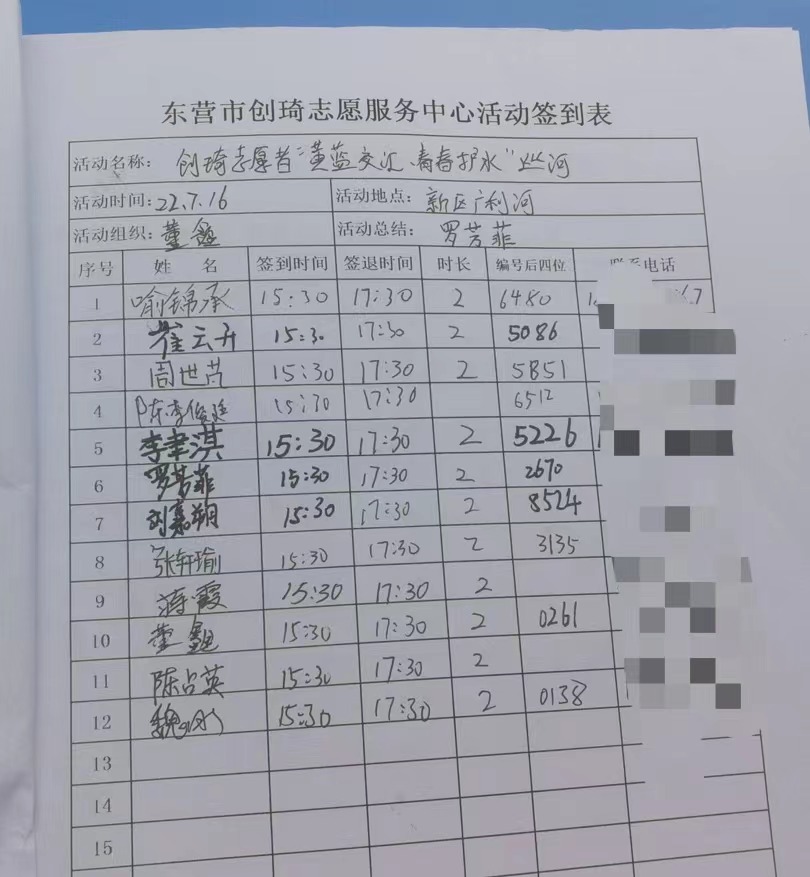 东营市创琦志愿服务中心活动签到表
活动名称: 创琦志愿者"黄蓝交汇、青春护水"巡河
活动时间: 22.7.16 活动地点: 新区广利河
活动组织: 董 活动总结: 罗芳菲
序号 姓 名 签到时间 签退时间 时长 编号后四位 联系电话
1 喻锦承 15:30 17:30 2 6480
2 崔云升 15:30 17:30 2 5086
3 周世芃 15:30 17:30 2 5851
4 陈李俊廷 15:30 17:30 6512
5 李聿淇 15:30 17:30 2 5226
6 罗芳菲 15:30 17:30 2 2670
7 刘嘉翔 15:30 17:30 2 8524
8 张轩瑜 15:30 17:30 2 3135
9 蒋霞 15:30 17:30 2
10 董 15:30 17:30 2 0261
11 陈占英 15:30 17:30 2
12 魏 15:30 17:30 2 0138
13
14
15